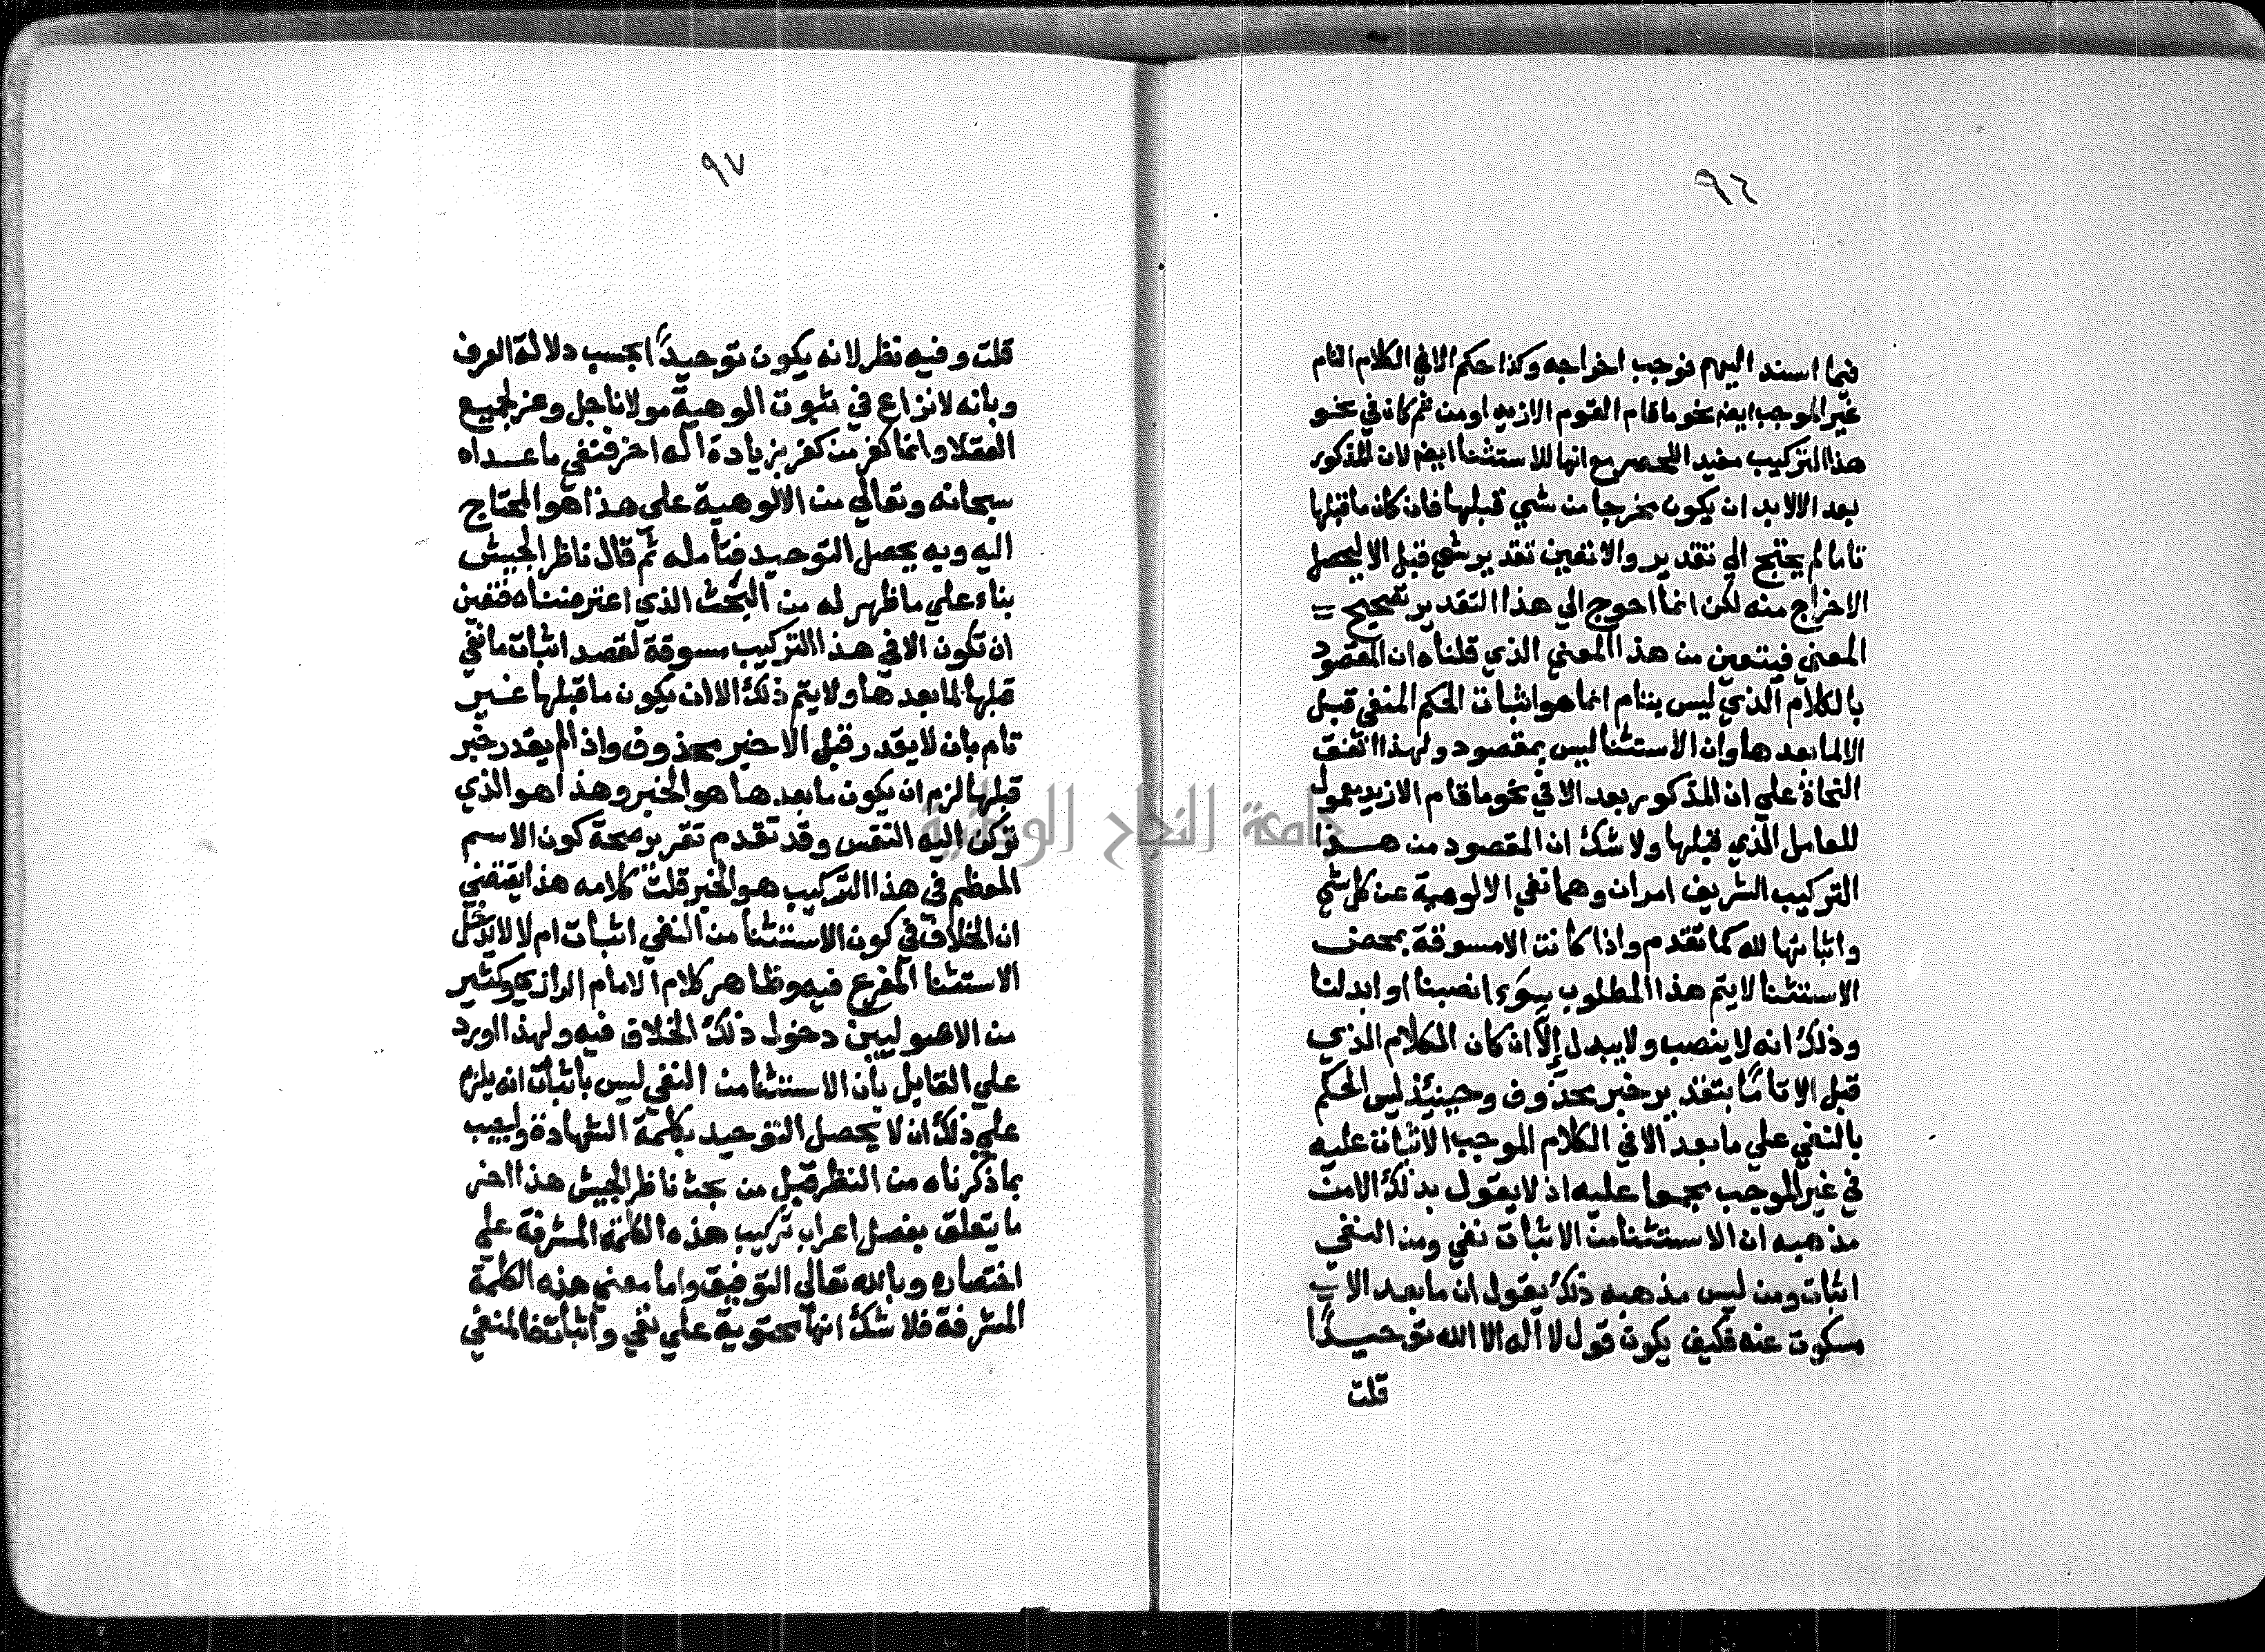 ٩٦
فيما اسند اليهم فوجب اخراجه وكذا حكم الا في الكلام التام
غير الموجب ايضا نحو ما قام القوم الا زيد او من ثم كان في نحو
هذا التركيب مفيدا للحصر مع انها للاستثنا ايضا لان المذكور
بعد الا لابد ان يكون مخرجا من شي قبلها فان كان ما قبلها
تاما لم يحتج الي تقدير والا تعين تقدير شي قبل الا ليحصل
الاخراج منه لكن انما احوج الي هذا التقدير تصحيح
المعني فيتعين من هذا المعني الذي قلناه ان المقصود
بالكلام الذي ليس بتام انما هو اثبات الحكم المنفي قبل
الا لما بعدها وان الاستثنا ليس بمقصود ولهذا اتفق
النحاة علي ان المذكور بعد الا في نحو ما قام الا زيد معمول
للعامل الذي قبلها ولا شك ان المقصود من هذا
التركيب الشريف امران وهما نفي الالوهية عن كل شي
واثباتها لله كما تقدم واذا كانت الا مسوقة بمحض
الاستثنا لا يتم هذا المطلوب سوء انصبنا او ابدلنا
وذلك انه لا ينصب ولا يبدل إلا ان كان الكلام الذي
قبل الا تامًا بتقدير خبر محذوف وحينيذ ليس الحكم
بالنفي علي ما بعد الا في الكلام الموجب الاثبات عليه
في غير الموجب مجمعا عليه اذ لا يقول بذلك الا من
مذهبه ان الاستثنا من الاثبات نفي ومن النفي
اثبات ومن ليس مذهبه ذلك يقول ان ما بعد الا
مسكوت عنه فكيف يكون قول لا اله الا الله توحيدًا
قلت
٩٧
قلت وفيه نظر لانه يكون توحيدًا بحسب دلالة العرف
وبانه لا نزاع في ثبوت الوهية مولانا جل وعز لجميع
العقلا وانما كفر من كفر بزيادة اله اخر فنفي ما عداه
سبحانه وتعالي من الالوهية علي هذا هو المحتاج
اليه وبه يحصل التوحيد فتأمله ثم قال ناظر الجيش
بناء علي ما ظهر له من البحث الذي اعترضناه فتعين
ان تكون الا في هذا التركيب مسوقة لقصد اثبات ما نفي
قبلها لما بعدها ولا يتم ذلك الا ان يكون ما قبلها غير
تام بان لا يقدر قبل الا خبر محذوف واذا لم يقدر خبر
قبلها لزم ان يكون ما بعدها هو الخبر وهذا هو الذي
تركن اليه النفس وقد تقدم تقرير صحة كون الاسم
المعظم في هذا التركيب هو الخبر قلت كلامه هذا يقتضي
ان الخلاف في كون الاستثنا من النفي اثبات ام لا لا يدخل
الاستثنا المفرغ فيه وظاهر كلام الامام الرازي وكثير
من الاصوليين دخول ذلك الخلاف فيه ولهذا اورد
علي القايل بأن الاستثنا من النفي ليس باثبات انه يلزم
علي ذلك ان لا يحصل التوحيد بكلمة الشهادة ويجيب
بما ذكرناه من النظر قبل من بحث ناظر الجيش هذا اخر
ما يتعلق بفصل اعراب تركيب هذه الكلمة المشرفة علي
اختصاره وبالله تعالي التوفيق واما معني هذه الكلمة
المشرفة فلا شك انها محتوية علي نفي واثبات فالمنفي
جامعة النجاح الوطنية